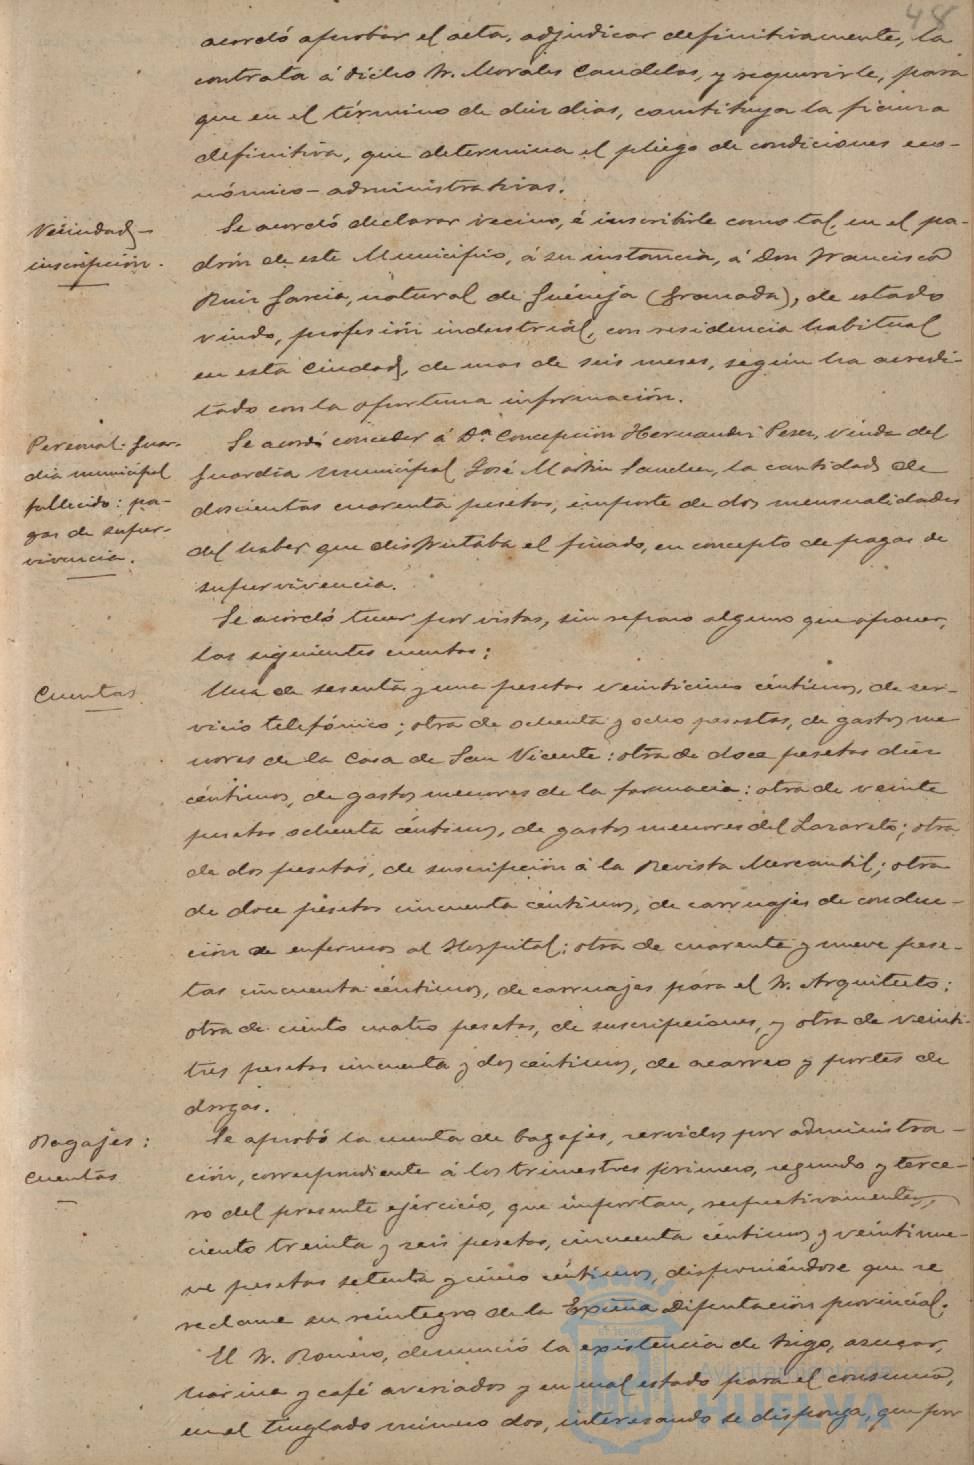 48
acordó aprobar el acta, adjudicar definitivamente, la
contrata á dicho Sr. Morales Candelas, y requerirle, para
que en el término de diez dias, constituya la fianza
definitiva, que determina el pliego de condiciones eco-
nómico-administrativas.
Vecindad-
inscripción.
Se acordó declarar vecino, é inscribirle como tal, en el pa-
drón de este Municipio, á su instancia, á Don Francisco
Ruiz Garcia, natural de Guéneja (Granada), de estado
viudo, profesión industrial, con residencia habitual
en esta Ciudad, de mas de seis meses, según ha acredi-
tado con la oportuna información.
Personal. Guar-
dia municipal
fallecido: pa-
gas de super-
vivencia.
Se acordó conceder á Dª Concepción Hernandez Perez, viuda del
Guardia municipal José Martin Sanchez, la cantidad de
doscientas cuarenta pesetas, importe de dos mensualidades
del haber que disfrutaba el finado, en concepto de pagas de
supervivencia.
Se acordó tener por vistas, sin reparo alguno que oponer,
las siguientes cuentas:
Cuentas
Una de sesenta y una pesetas veinticinco céntimos, de ser-
vicio telefónico; otra de ochenta y ocho pesetas, de gastos me
nores de la Casa de San Vicente: otra de doce pesetas diez
céntimos, de gastos menores de la farmacia: otra de veinte
pesetas ochenta céntimos, de gastos menores del Lazareto; otra
de dos pesetas, de suscripción á la Revista Mercantil; otra
de doce pesetas cincuenta céntimos, de carruajes de conduc-
ción de enfermos al Hospital; otra de cuarenta y nueve pese-
tas cincuenta céntimos, de carruajes para el Sr. Arquitecto;
otra de ciento cuatro pesetas, de suscripciones, y otra de veinti-
tres pesetas cincuenta y dos céntimos, de acarreo y portes de
drogas.
Bagajes:
cuentas
Se aprobó la cuenta de bagajes, servidos por administra-
ción, correspondiente á los trimestres primero, segundo y terce-
ro del presente ejercicio, que importan, respectivamente,
ciento treinta y seis pesetas, cincuenta céntimos y veintinue-
ve pesetas setenta y cinco céntimos, disponiéndose que se
reclame su reintegro de la Excma Diputación provincial.
El Sr. Romero, denunció la existencia de trigo, azucar,
harina y café averiados y en mal estado para el consumo,
en el tinglado número dos, interesando se disponga, que por
Ayuntamiento de
HUELVA